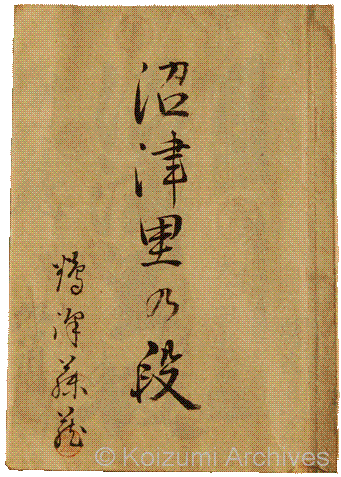 沼津里の段
鶴澤藤蔵
© Koizumi Archives